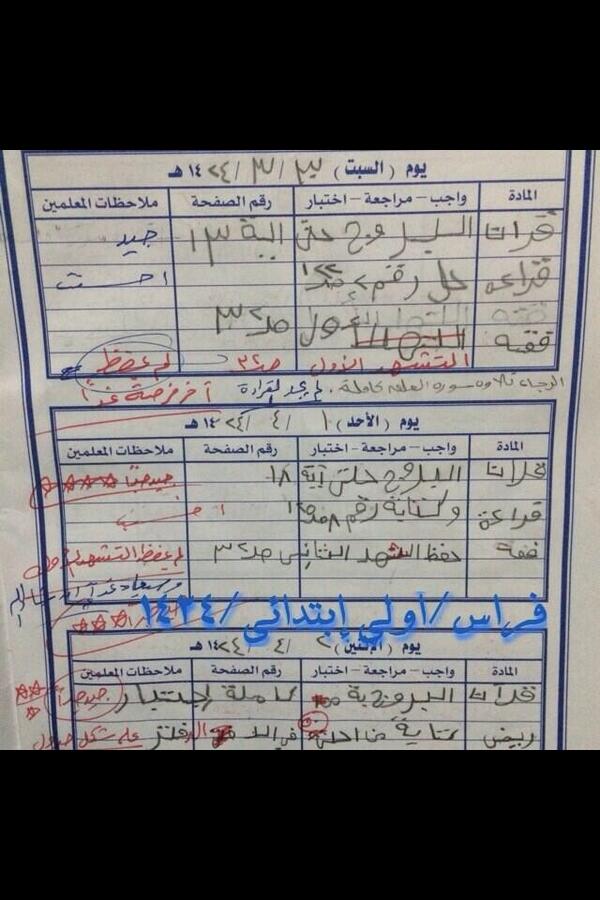 يوم (السبت) ٣٠/٣/١٤٢٤هـ
المادة واجب - مراجعة - اختبار رقم الصفحة ملاحظات المعلمين
قرانا البروج حتى الية ١٣ جيد
قراءة حل رقم ٢ احسنت
فقه التشهد الأول صـ٣٢
التشهد الأول صـ٣٢ لم يحفظ
الرجاء تلاوة سورة العلق كاملة. لم يجد القراءة آخر فرصة غداً
يوم (الأحد) ١/٤/١٤٢٤هـ
المادة واجب - مراجعة - اختبار رقم الصفحة ملاحظات المعلمين
قرانا البروج حتى آية ١٨ جيد جداً
قراءة وكتابة رقم ٨ أحسنت
فقه حفظ التشهد الثاني صـ٣٢ لم يحفظ التشهد الأول
فراس/أولى إبتدائي/١٤٢٤
يوم (الإثنين) ٢/٤/١٤٢٤هـ
المادة واجب - مراجعة - اختبار رقم الصفحة ملاحظات المعلمين
قرانا البروج كاملة إختبار جيد جداً
ريض كتابة في الدفتر على شكل جدول